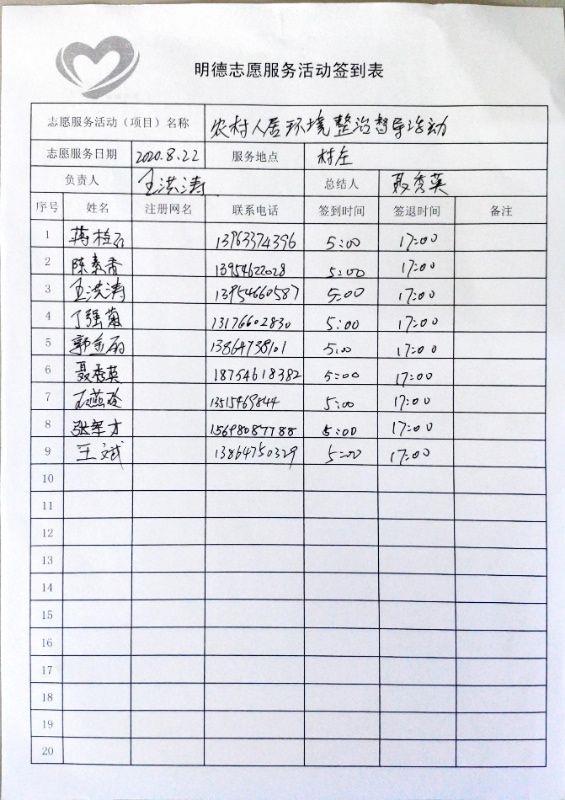 明德志愿服务活动签到表
志愿服务活动（项目）名称 农村人居环境整治督导活动
志愿服务日期 2020.8.22 服务地点 村庄
负责人 王洪涛 总结人 聂秀英
序号 姓名 注册网名 联系电话 签到时间 签退时间 备注
1 13963374396 5:00 17:00
2 陈素香 13954622028 5:00 17:00
3 王洪涛 13954660587 5:00 17:00
4 丁强菊 13176602830 5:00 17:00
5 13864738101 5:00 17:00
6 聂秀英 18754618382 5:00 17:00
7 王燕玲 5:00 17:00
8 张军才 15698087788 5:00 17:00
9 王斌 13864750329 5:00 17:00
10
11
12
13
14
15
16
17
18
19
20